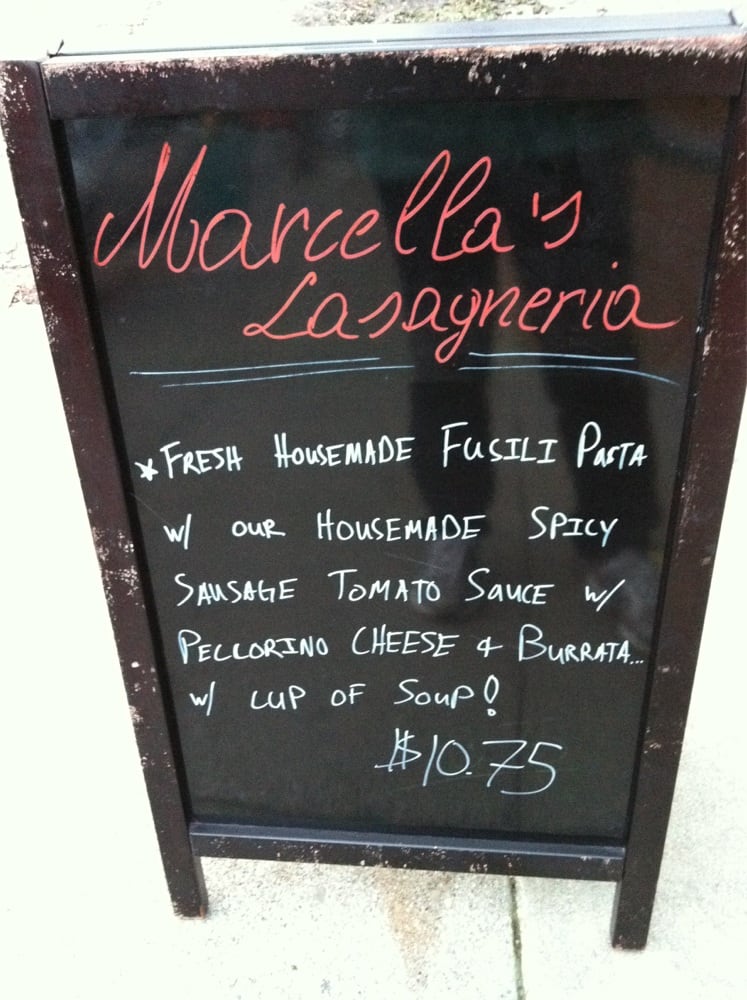 Marcella's
Lasagneria
*FRESH HOUSEMADE FUSILI PASTA
W/ OUR HOUSEMADE SPICY
SAUSAGE TOMATO SAUCE W/
PECCORINO CHEESE & BURRATA...
W/ CUP OF SOUP!
$10.75